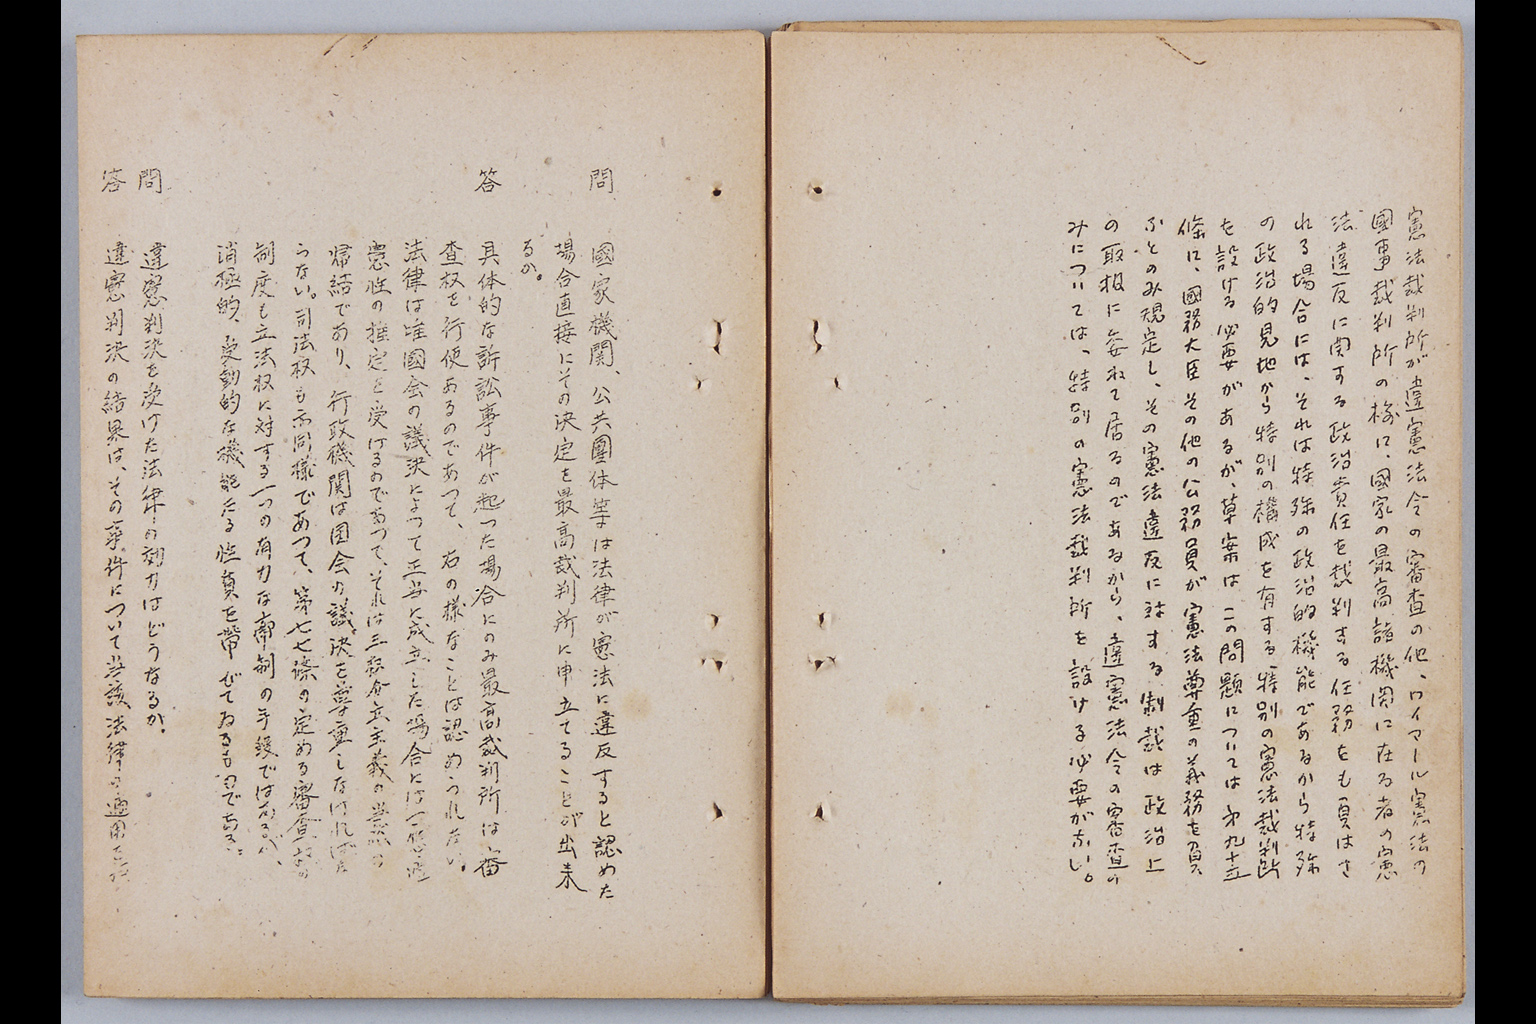 憲法裁判所が違憲法令の審査の他、ワイマール憲法の
國事裁判所の様に、國家の最高諸機関に在る者の憲
法違反に関する政治責任を裁判する任務をも負はさ
れる場合には、それは特殊の政治的機能であるから特殊
の政治的見地から特別の構成を有する特別の憲法裁判所
を設ける必要があるが、草案はこの問題については第九十五
條に、國務大臣その他の公務員が憲法尊重の義務を負
ふとのみ規定し、その憲法違反に対する制裁は政治上
の取扱に委ねて居るのであるから、違憲法令の審査の
みについては、特別の憲法裁判所を設ける必要がない。
問
國家機関、公共團体等は法律が憲法に違反すると認めた
場合直接にその決定を最高裁判所に申立てることが出来
るか。
答
具体的な訴訟事件が起つた場合にのみ最高裁判所は審
査权を行使あるのであつて、右の様なことは認められない。
法律は唯國会の議決によつて正当に成立した場合には一応
憲性の推定を受けるのであつて、それは三权分立主義の当然の
帰結であり、行政機関は国会の議決を尊重しなければな
らない。司法权も亦同様であつて、第七七條の定める審査权の
制度も立法权に対する一つの有力な牽制の手段ではあるが、
消極的、受動的な機能たる性質を帯びてゐるものである。
問
違憲判決を受けた法律の効力はどうなるか。
答
違憲判決の結果は、その事件について当該法律の適用